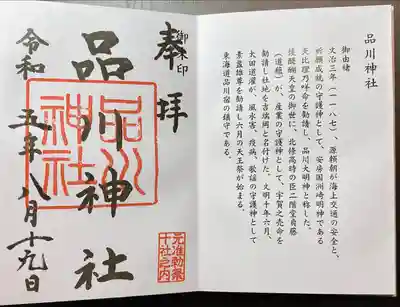 品川神社
御由緒
文治三年(一一八七)、源頼朝が海上交通の安全と、
祈願成就の守護神として、安房国洲崎明神である
天比理乃咩命を勧請し、品川大明神と称した。
後醍醐天皇の御世に、北條高時の臣二階堂貞藤
(道蘊)が、産業の守護神として、宇賀之売命を
勧請し社地を吉端岡と名付けた。文明十年六月、
太田道灌が、風水害、疫病、歌謡の守護神として
素盞雄尊を勧請し六月の天王祭が始まる
東海道品川宿の鎮守である。
御朱印
奉拝
元准勅祭
十社之内
品川神社
品川
神社
令和五年八月十九日